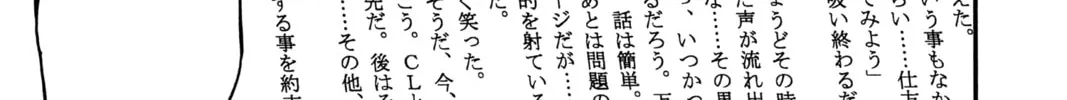 えた。
いう事もなか
らい……仕
てみよう」
吸い終わるだ
ょうどその時
た声が流れ出
な……その
っ、いつかつ
るだろう。万
話は簡単。
あとは問題の
ージだが……
的を射ている
た。
く笑った。
そうだ、今、
こう。CLと
先だ。後は
……その他、
する事を約